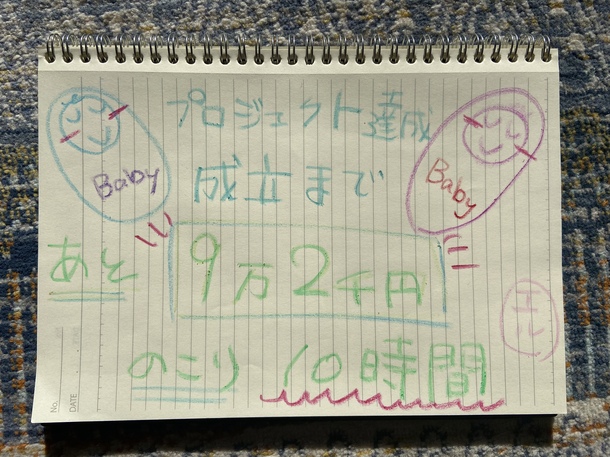 プロジェクト達成
Baby
成立まで
Baby
あと
9万2千円
のこり 10時間
No.
DATE